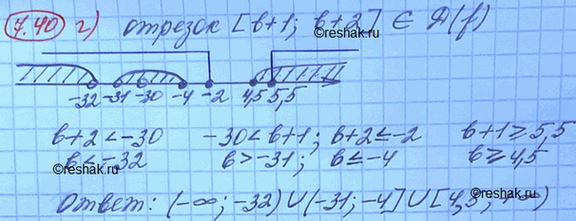 7.40 г) отрезок [в+1; в+2] ∈ D(f)
©reshak.ru
-32 -31 -30 -4 -2 4,5 5,5
в+2<-30 -30<в+1; в+2≤-2 в+1≥5,5
в<-32 в>-31; в≤-4 в≥4,5
©reshak.ru
Ответ: (-∞; -32)∪(-31; -4]∪[4,5; +∞)
©reshak.ru